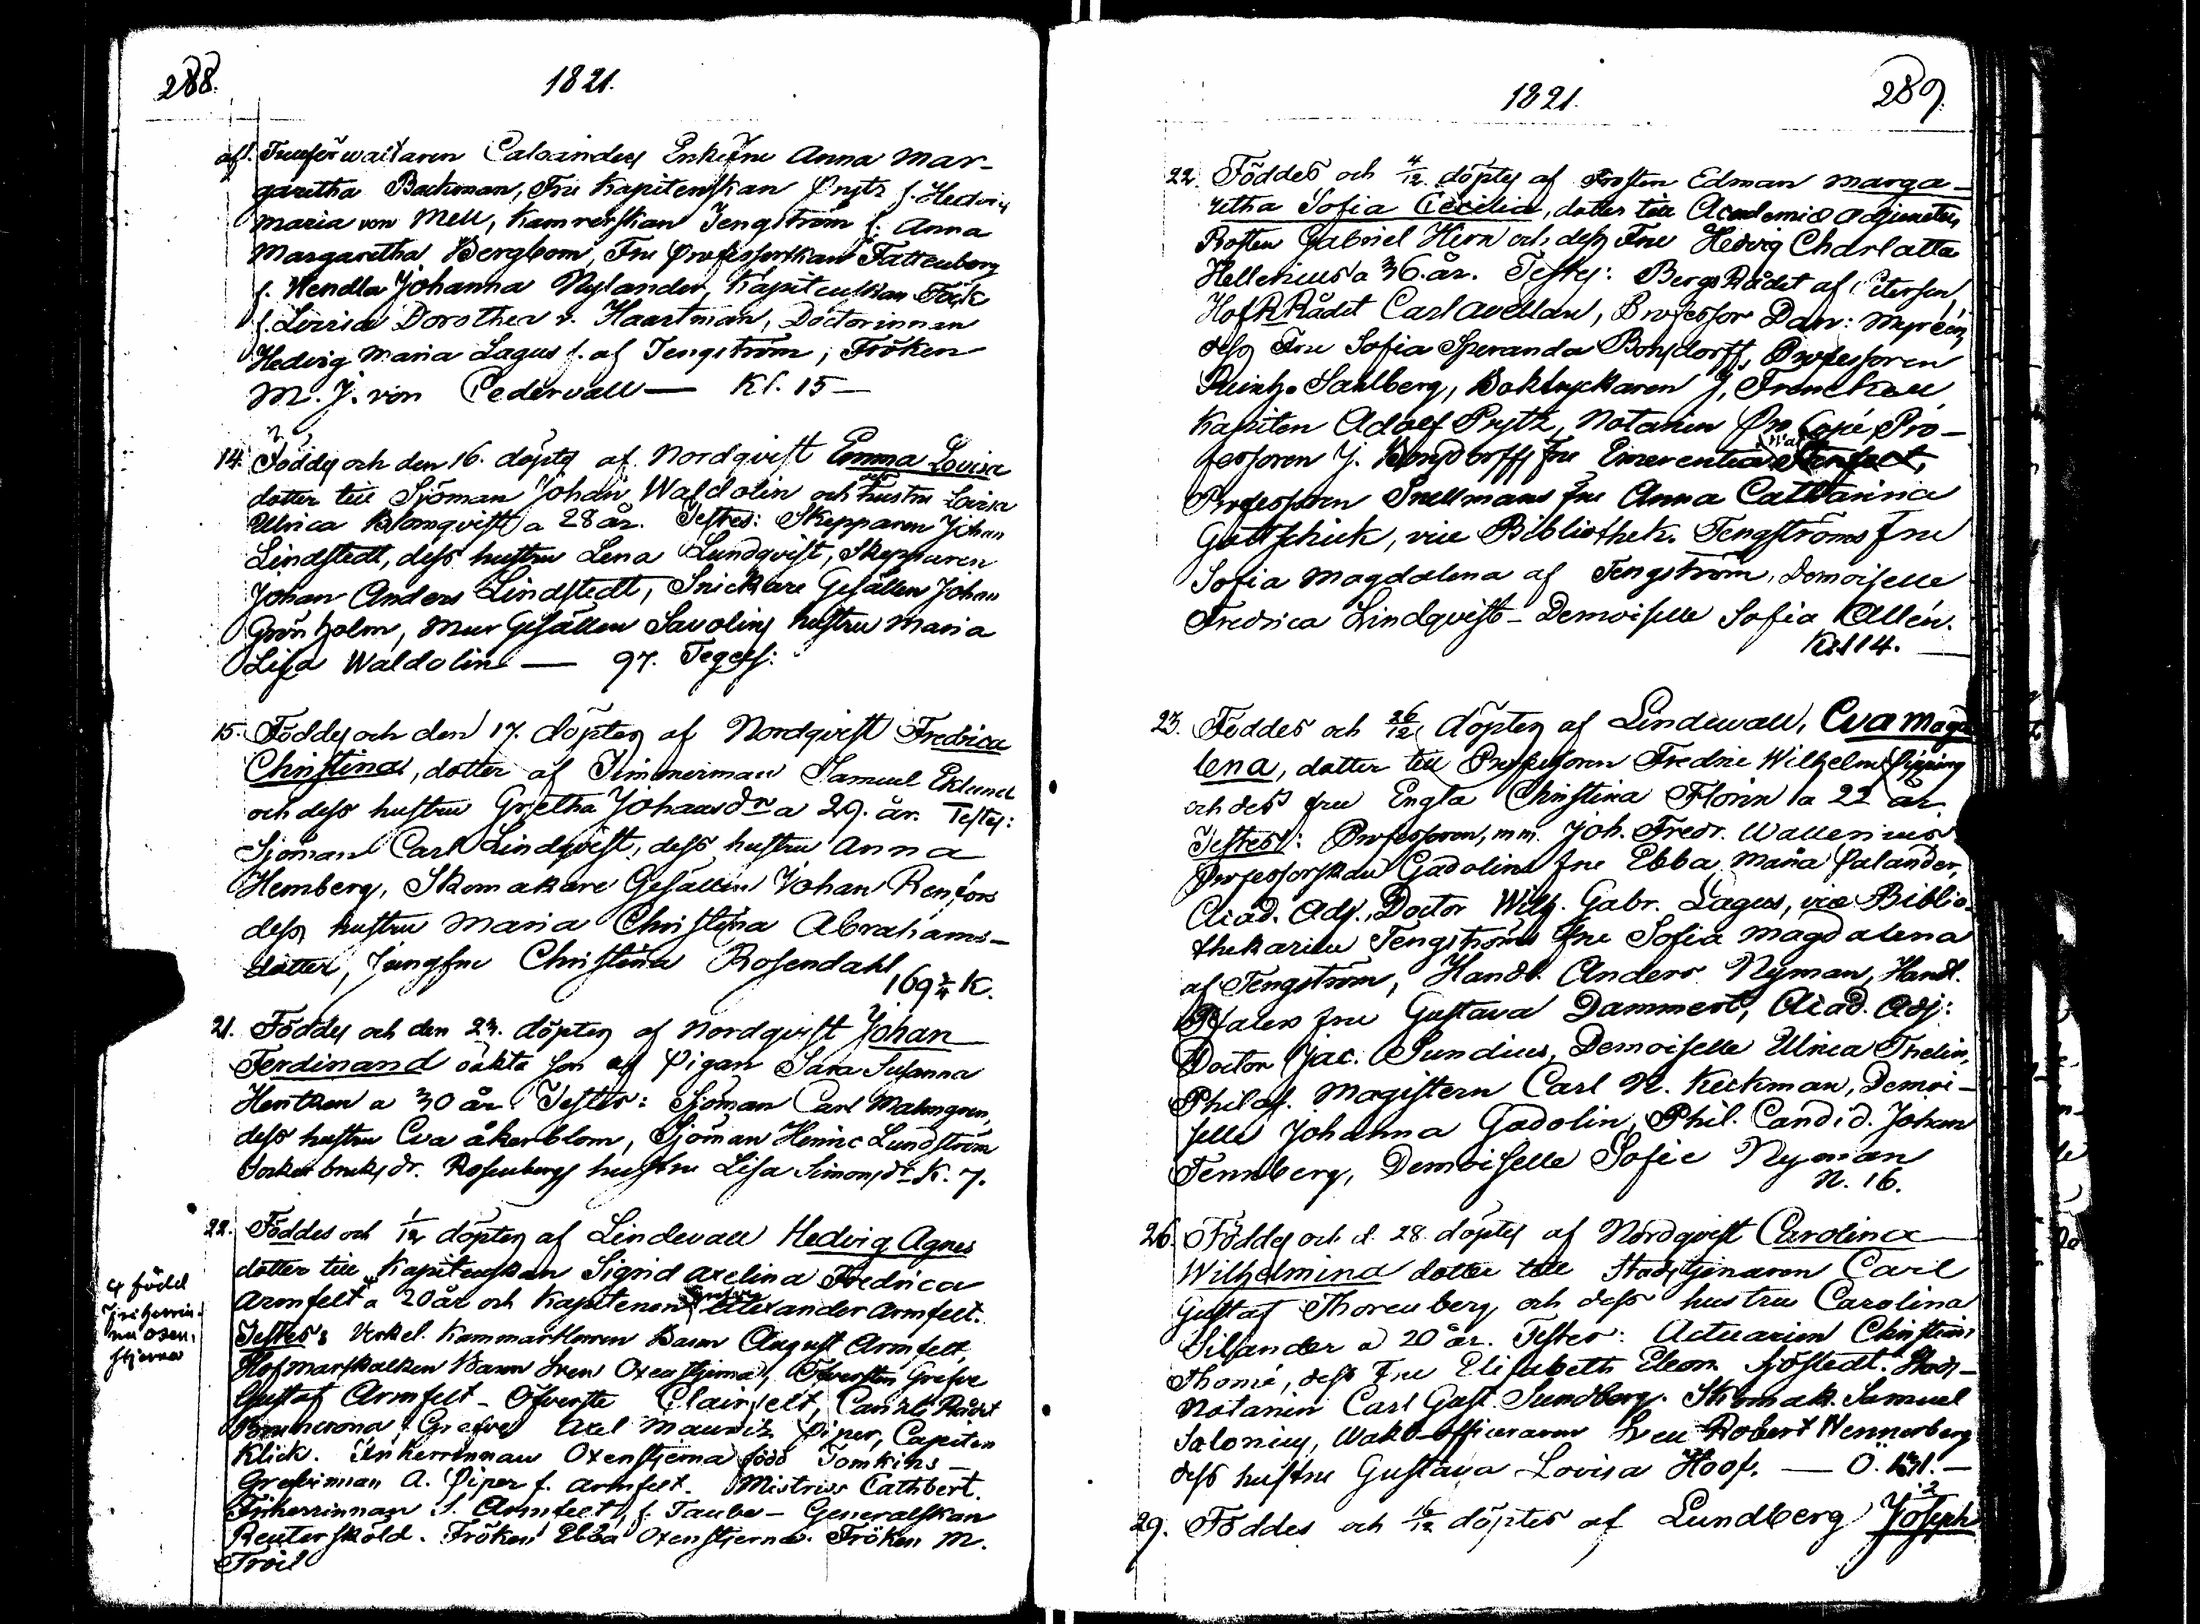 288.
1821.
garetha Backman, Fru Kapitenskan Prytz f. Hedvig
Maria von Mell, Kamrerskan Tengström f. Anna
Margaretha Bergbom, Fru Professorskan Fattenborg
f. Hendla Johanna Nylander, Kapitenskan Fock
f. Lovisa Dorothea v. Haartman, Doctorinnan
Hedvig Maria Lagus f. af Tengström, Fröken
M. J. von Cedervall — Kl. 15 —
14. Föddes och den 16. döptes af Nordqvist Emma Lovisa
dotter till Sjöman Johan Waldolin och dess hustru Lovisa
Ulrica Blomqvist a 28 år. Testes: Skepparen Johan
Lindstedt, dess hustru Lena Lundqvist, Skepparen
Johan Anders Lindstedt, Snickare Gesällen Johan
Grönholm, Mur Gesällen Savolins hustru Maria
Lisa Waldolin — 97.
15. Föddes och den 17. döptes af Nordqvist Fredrica
Christina, dotter af Timmerman Samuel Eklund
och dess hustru Gretha Johansdr a 29. år. Testes:
Sjöman Carl Lindqvist, dess hustru Anna
Hemberg, Skomakare Gesällen Johan Renfors
dess hustru Maria Christina Abrahams-
dotter, Jungfru Christina Rosendahl
169 K.
21. Föddes och den 23. döptes af Nordqvist Johan
Ferdinand oäkta son af Pigan Sara Susanna
a 30 år. Testes: Sjöman Carl Malmgren,
dess hustru Eva Åkerblom, Sjöman Henric Lundström
Sockerbruks dr. Rosenbergs hustru Lisa Simonsdr K. 7.
22. Föddes och 1/12 döptes af Lindevall Hedvig Agnes
dotter till Kapitenskan Sigrid Axelina Fredrica
Armfelt x a 20 år och Kapitenen Grefve Alexander Armfelt.
x född
friherrin-
na Oxen-
stjerna
Testes: Verkel. Kammarherren Baron August Armfelt,
Hofmarskalken Baron Sven Oxenstjerna, Öfversten Grefve
Gustaf Armfelt - Öfverste Clairfelt, Cantzli Rådet
Grefve Axel Mauritz Piper, Capiten
Klick. Friherrinnan Oxenstjerna född Tomkins —
Grefvinnan A. Piper f. Armfelt. Mistriss Cathbert.
Friherrinnan S. Armfeelt, f. Taube - Generalskan
Reuterskold. Fröken Ebba Oxenstjerna. Fröken M.
Troil
1821.
289.
22. Föddes och 4/12 döptes af Prosten Edman Marga-
retha Sofia Cecilia, dotter till Academie Adjuncten,
Prosten Gabriel Hirn och dess Fru Hedvig Charlotta
Hellenius a 36. år. Testes: BergsRådet af Petersen,
HofRådet Carl Avellan, Professor Dan: Myréen,
dess Fru Sofia Speranda Bonsdorff, Professoren
Reinh. Sahlberg, Boktryckaren J. Frenckell
Kapiten Adolf Prytz, Notarien Pro-
fessoren J. Bonsdorffs fru Emerentia
Professoren Snellmans fru Anna Catharina
Gottschick, vice Bibliothek. Tengströms fru
Sofia Magdalena af Tengström, Demoiselle
Fredrica Lindqvist - Demoiselle Sofia Allén.
114.
23. Föddes och 26/12 döptes af Lindevall, Eva Magda
lena, dotter till Professoren Fredric Wilhelm Pipping
och dess fru Engla Christina Florin a 22 år.
Testes: Professoren, m.m. Joh. Fredr. Wallenius
Professorskan Gadolins fru Ebba Maria Palander,
Acad. Adj. Doctor Wilh. Gabr. Lagus, vice Biblio-
thekarien Tengströms fru Sofia Magdalena
af Tengström, Handl. Anders Nyman, Handl.
fru Gustava Dammert, Acad. Adj:
Doctor Jac. Sundius, Demoiselle Ulrica Thelin,
Philos. Magistern Carl N. Keckman, Demoi-
selle Johanna Gadolin, Phil. Candid. Johan
Tennberg, Demoiselle Sofie Nyman
N. 16.
26. Föddes och d. 28. döptes af Nordqvist Carolina
Wilhelmina dotter till Stadstjenaren Carl
Gustaf Thorenberg och dess hustru Carolina
Silander a 20 år. Testes: Actuarien Christian
Thomé, dess Fru Elisabeth Eleon. Sjöstedt. Stads-
Notarien Carl Gust. Sundberg. Skomak. Samuel
Salonius, Robert Wennerberg
dess hustru Gustava Lovisa Hoof. —
29. Föddes och 16/12 döptes af Lundberg Joseph